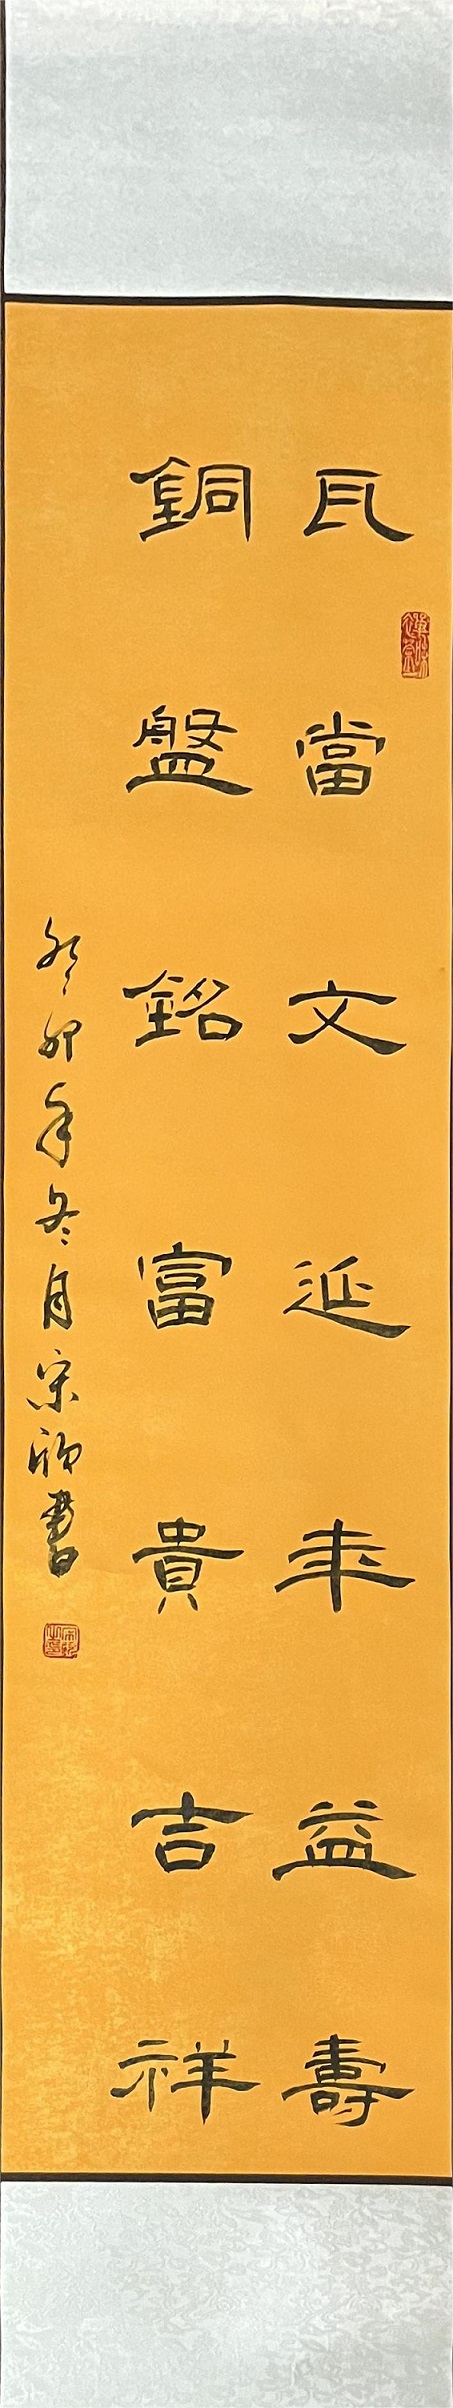 瓦當文延年益壽
銅盤銘富貴吉祥
癸卯年冬月宋欣書